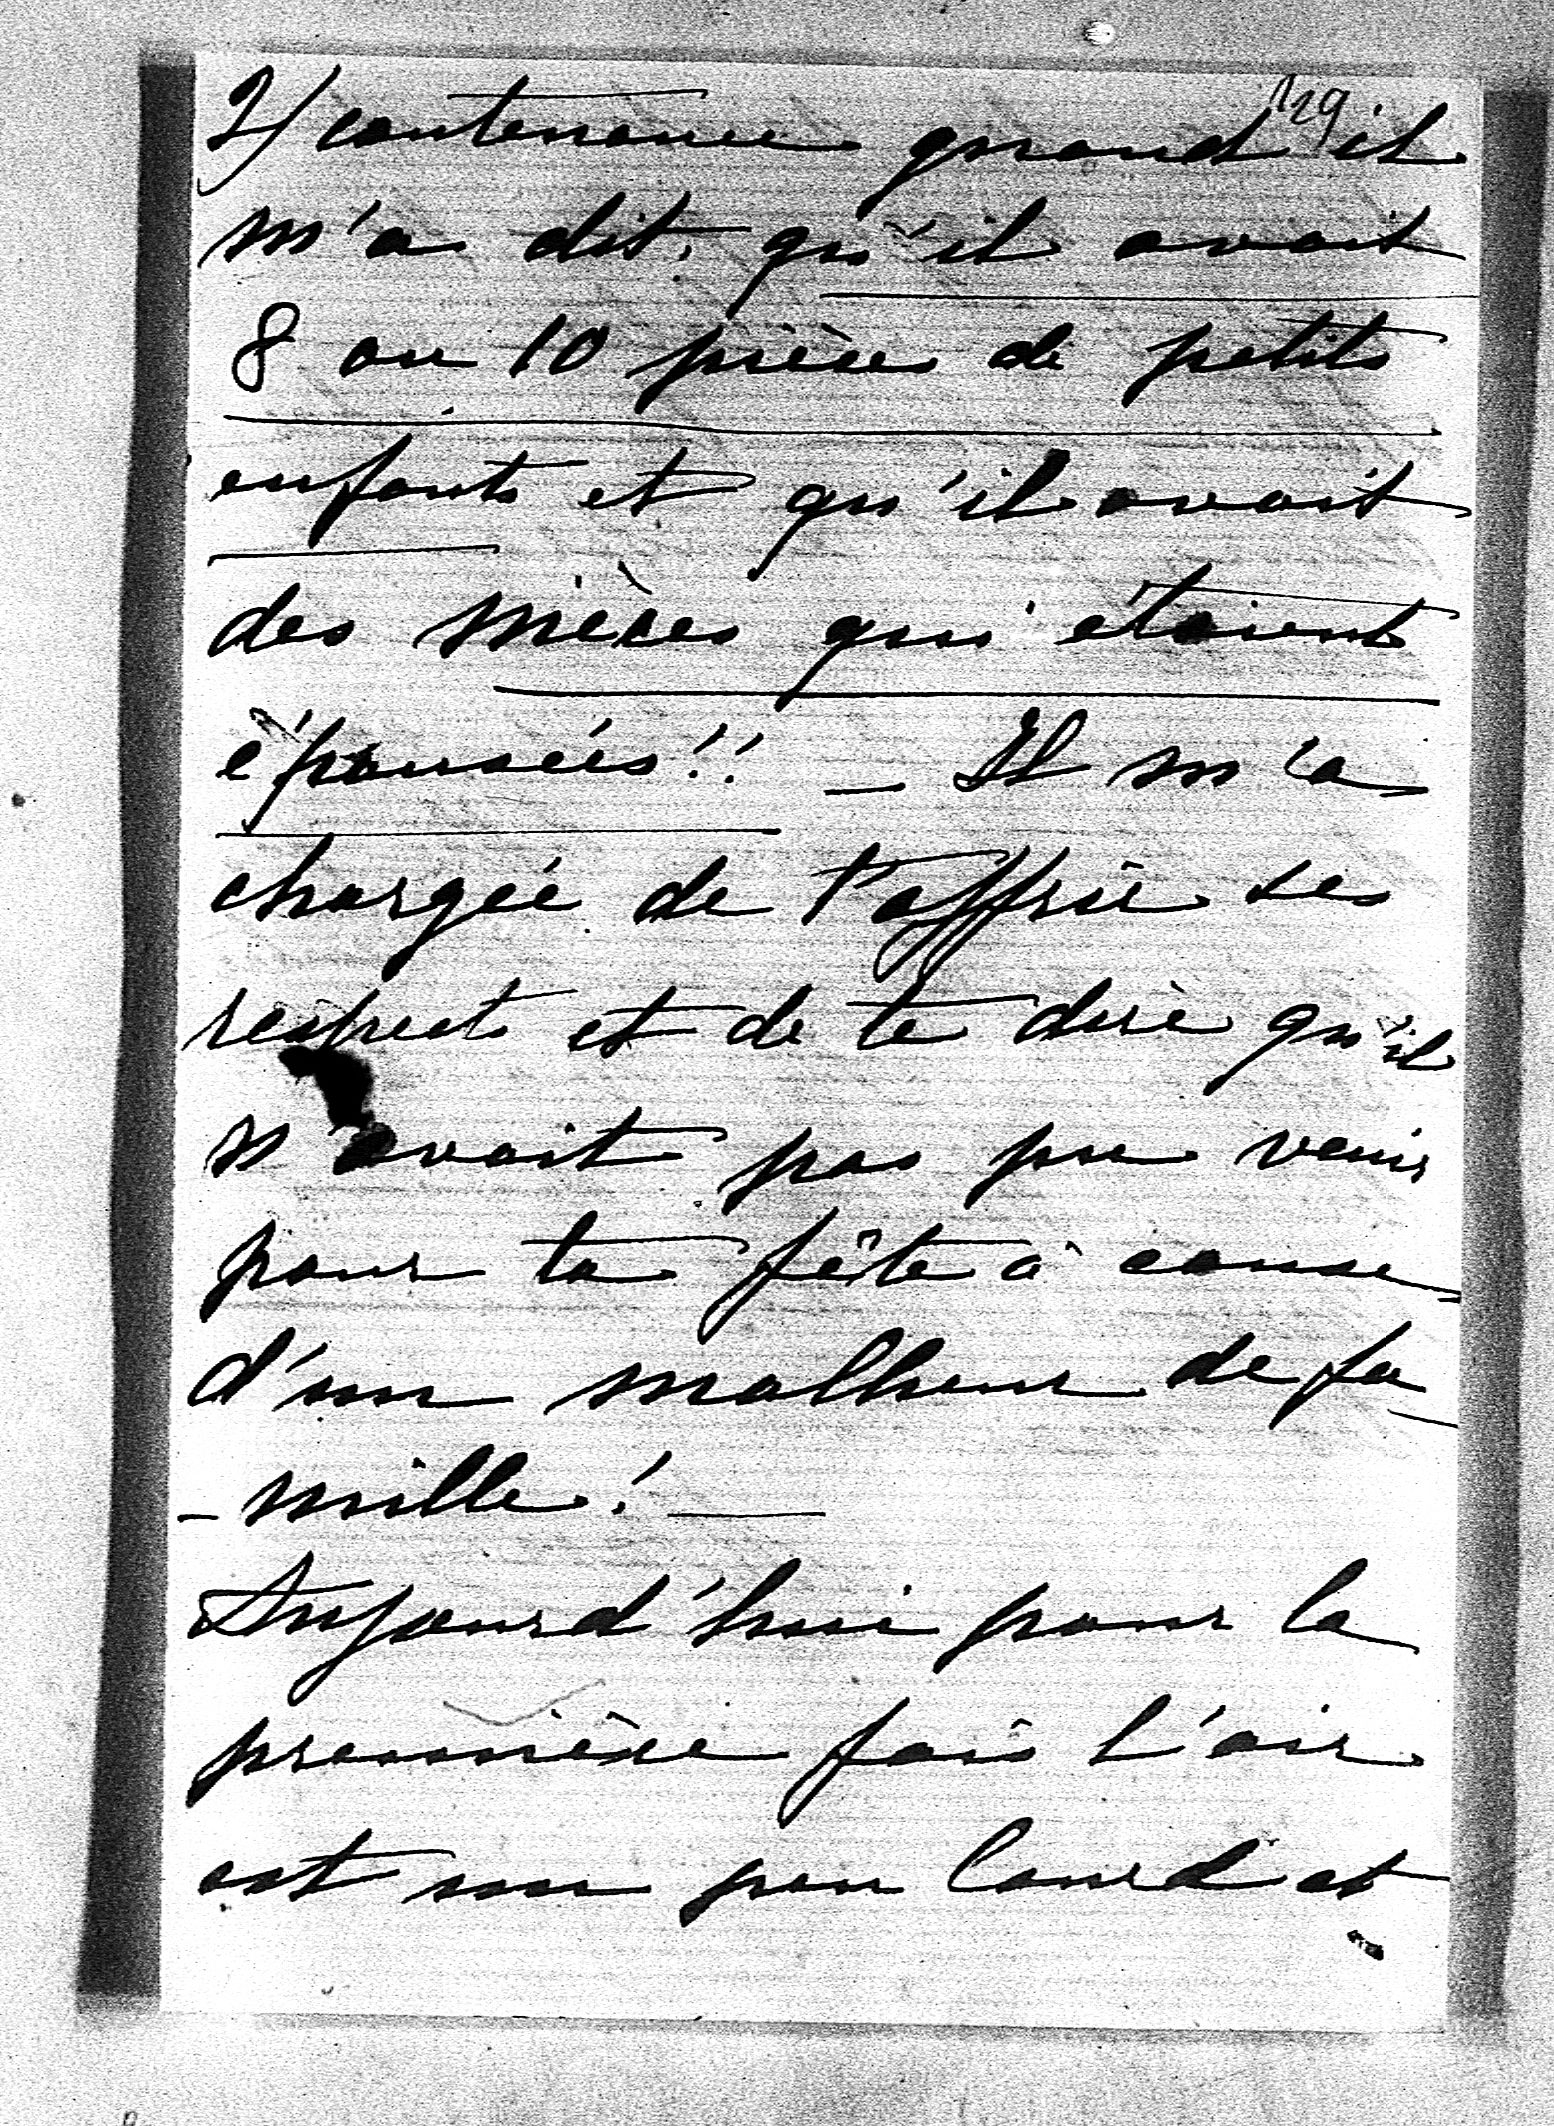 129
2/ contenance quand il
m'a dit, qu'il avait
8 ou 10 pièces de petits
enfants et qu'il avait
des nièces qui étaient
épousées!! — Il m'a
chargée de t'offrir ses
respects et de te dire qu'il
n'avait pas pu venir
pour ta fête à cause
d'un malheur de fa
-mille! —
Aujourd'hui pour la
première fois l'air
est un peu lourd et